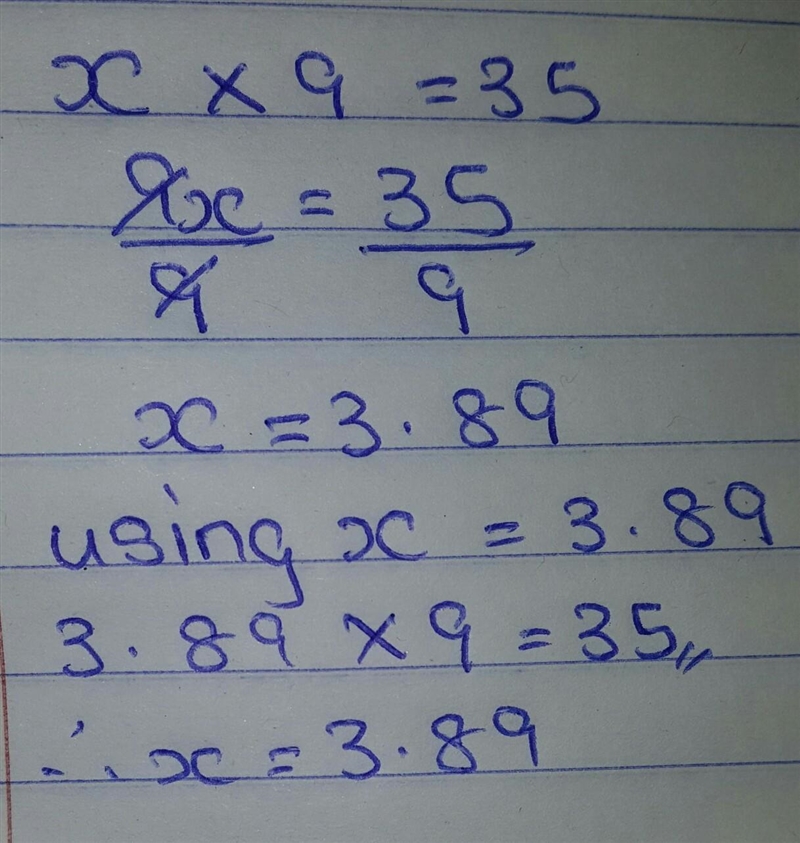 x × 9 = 35
9x = 35
9 9
x = 3.89
using x = 3.89
3.89 × 9 = 35,,
∴ x = 3.89